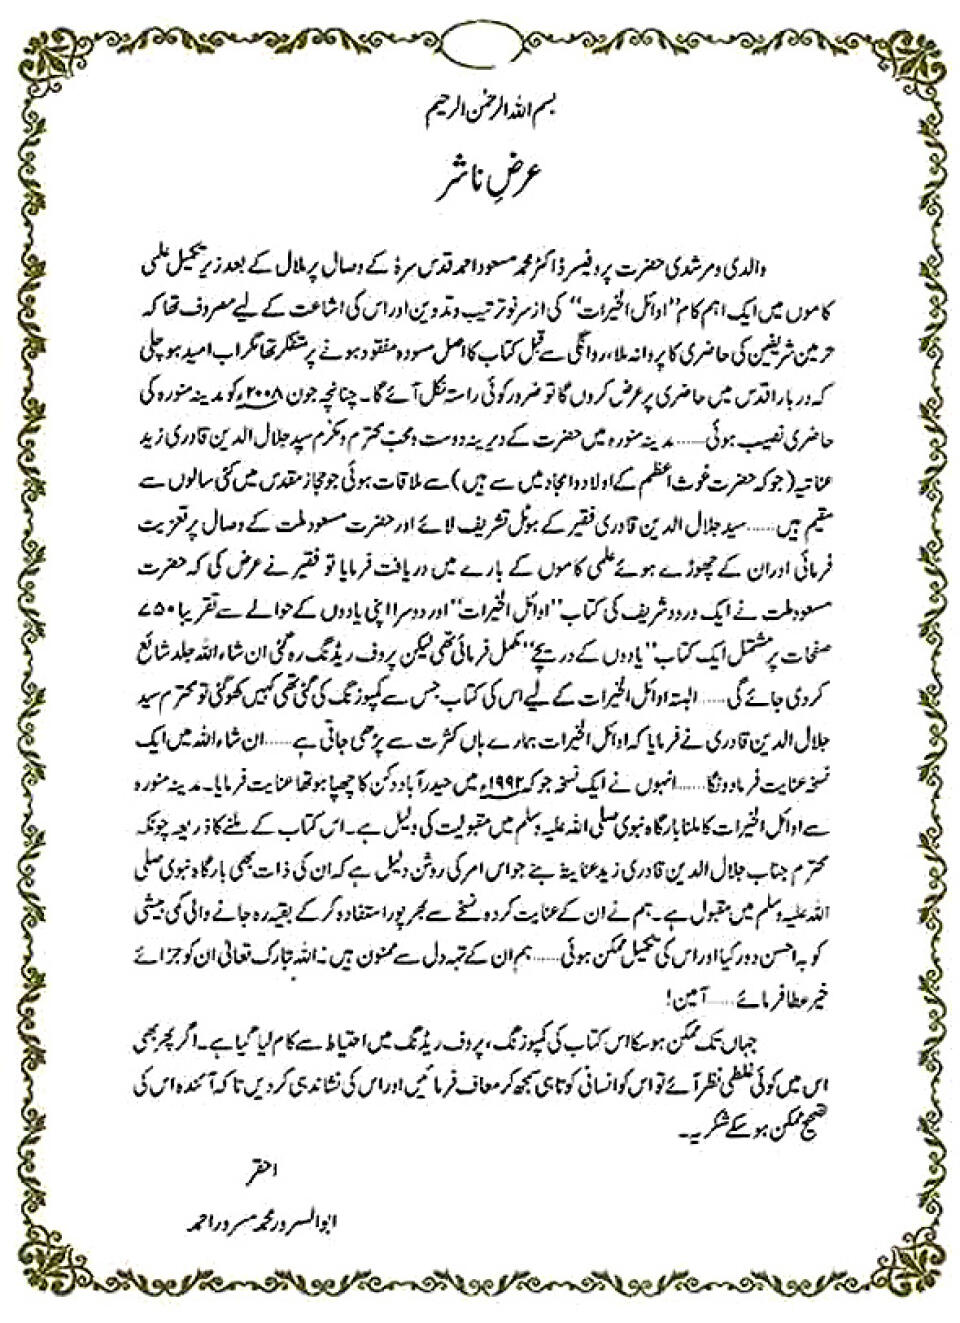 بسم اللہ الرحمٰن الرحیم
عرضِ ناشر
والدی و مرشدی حضرت پروفیسر ڈاکٹر محمد مسعود احمد قدس سرہٗ کے وصال پر ملال کے بعد زیر تکمیل علمی
کاموں میں ایک اہم کام "اوائل الخیرات" کی از سر نو ترتیب و تدوین اور اس کی اشاعت کے لیے مصروف تھا کہ
حرمین شریفین کی حاضری کا پروانہ ملا، روانگی سے قبل کتاب کا اصل مسودہ مفقود ہونے پر متفکر تھا مگر اب امید ہو چلی
کہ دربار اقدس میں حاضری پر عرض کروں گا تو ضرور کوئی راستہ نکل آئے گا۔ چنانچہ جون ۲۰۰۸ء کو مدینہ منورہ کی
حاضری نصیب ہوئی...... مدینہ منورہ میں حضرت کے دیرینہ دوست و محب محترم و مکرم سید جلال الدین قادری زید
عنایتہ (جو کہ حضرت غوث اعظم کے اولاد و امجاد میں سے ہیں) سے ملاقات ہوئی جو حجاز مقدس میں کئی سالوں سے
مقیم ہیں...... سید جلال الدین قادری فقیر کے ہوٹل تشریف لائے اور حضرت مسعود ملت کے وصال پر تعزیت
فرمائی اور ان کے چھوڑے ہوئے علمی کاموں کے بارے میں دریافت فرمایا تو فقیر نے عرض کی کہ حضرت
مسعود ملت نے ایک درود شریف کی کتاب "اوائل الخیرات" اور دوسرا اپنی یادوں کے حوالے سے تقریبا ۷۵۰
صفحات پر مشتمل ایک کتاب "یادوں کے دریچے" مکمل فرمائی تھی لیکن پروف ریڈنگ رہ گئی ان شاء اللہ جلد شائع
کر دی جائے گی...... البتہ اوائل الخیرات کے لیے اس کی کتاب جس سے کمپوزنگ کی گئی تھی کہیں کھو گئی تو محترم سید
جلال الدین قادری نے فرمایا کہ اوائل الخیرات ہمارے ہاں کثرت سے پڑھی جاتی ہے...... ان شاء اللہ میں ایک
نسخہ عنایت فرما دونگا...... انہوں نے ایک نسخہ جو کہ ۱۹۹۲ء میں حیدر آباد دکن کا چھپا ہوتھا عنایت فرمایا۔ مدینہ منورہ
سے اوائل الخیرات کا ملنا بارگاہ نبوی صلی اللہ علیہ وسلم میں مقبولیت کی دلیل ہے۔ اس کتاب کے ملنے کا ذریعہ چونکہ
محترم جناب جلال الدین قادری زید عنایۃ بنے جو اس امر کی روشن دلیل ہے کہ ان کی ذات بھی بارگاہ نبوی صلی
اللہ علیہ وسلم میں مقبول ہے۔ ہم نے ان کے عنایت کردہ نسخے سے بھرپور استفادہ کر کے بقیہ رہ جانے والی کمی بیشی
کو بہ احسن دور کیا اور اس کی تکمیل ممکن ہوئی...... ہم ان کے تہہ دل سے ممنون ہیں۔ اللہ تبارک تعالیٰ ان کو جزائے
خیر عطا فرمائے...... آمین!
جہاں تک ممکن ہو سکا اس کتاب کی کمپوزنگ، پروف ریڈنگ میں احتیاط سے کام لیا گیا ہے۔ اگر پھر بھی
اس میں کوئی غلطی نظر آئے تو اس کو انسانی کوتاہی سمجھ کر معاف فرمائیں اور اس کی نشاندہی کر دیں تاکہ آئندہ اس کی
تصحیح ممکن ہو سکے شکریہ۔
احقر
ابوالسرور محمد مسرور احمد